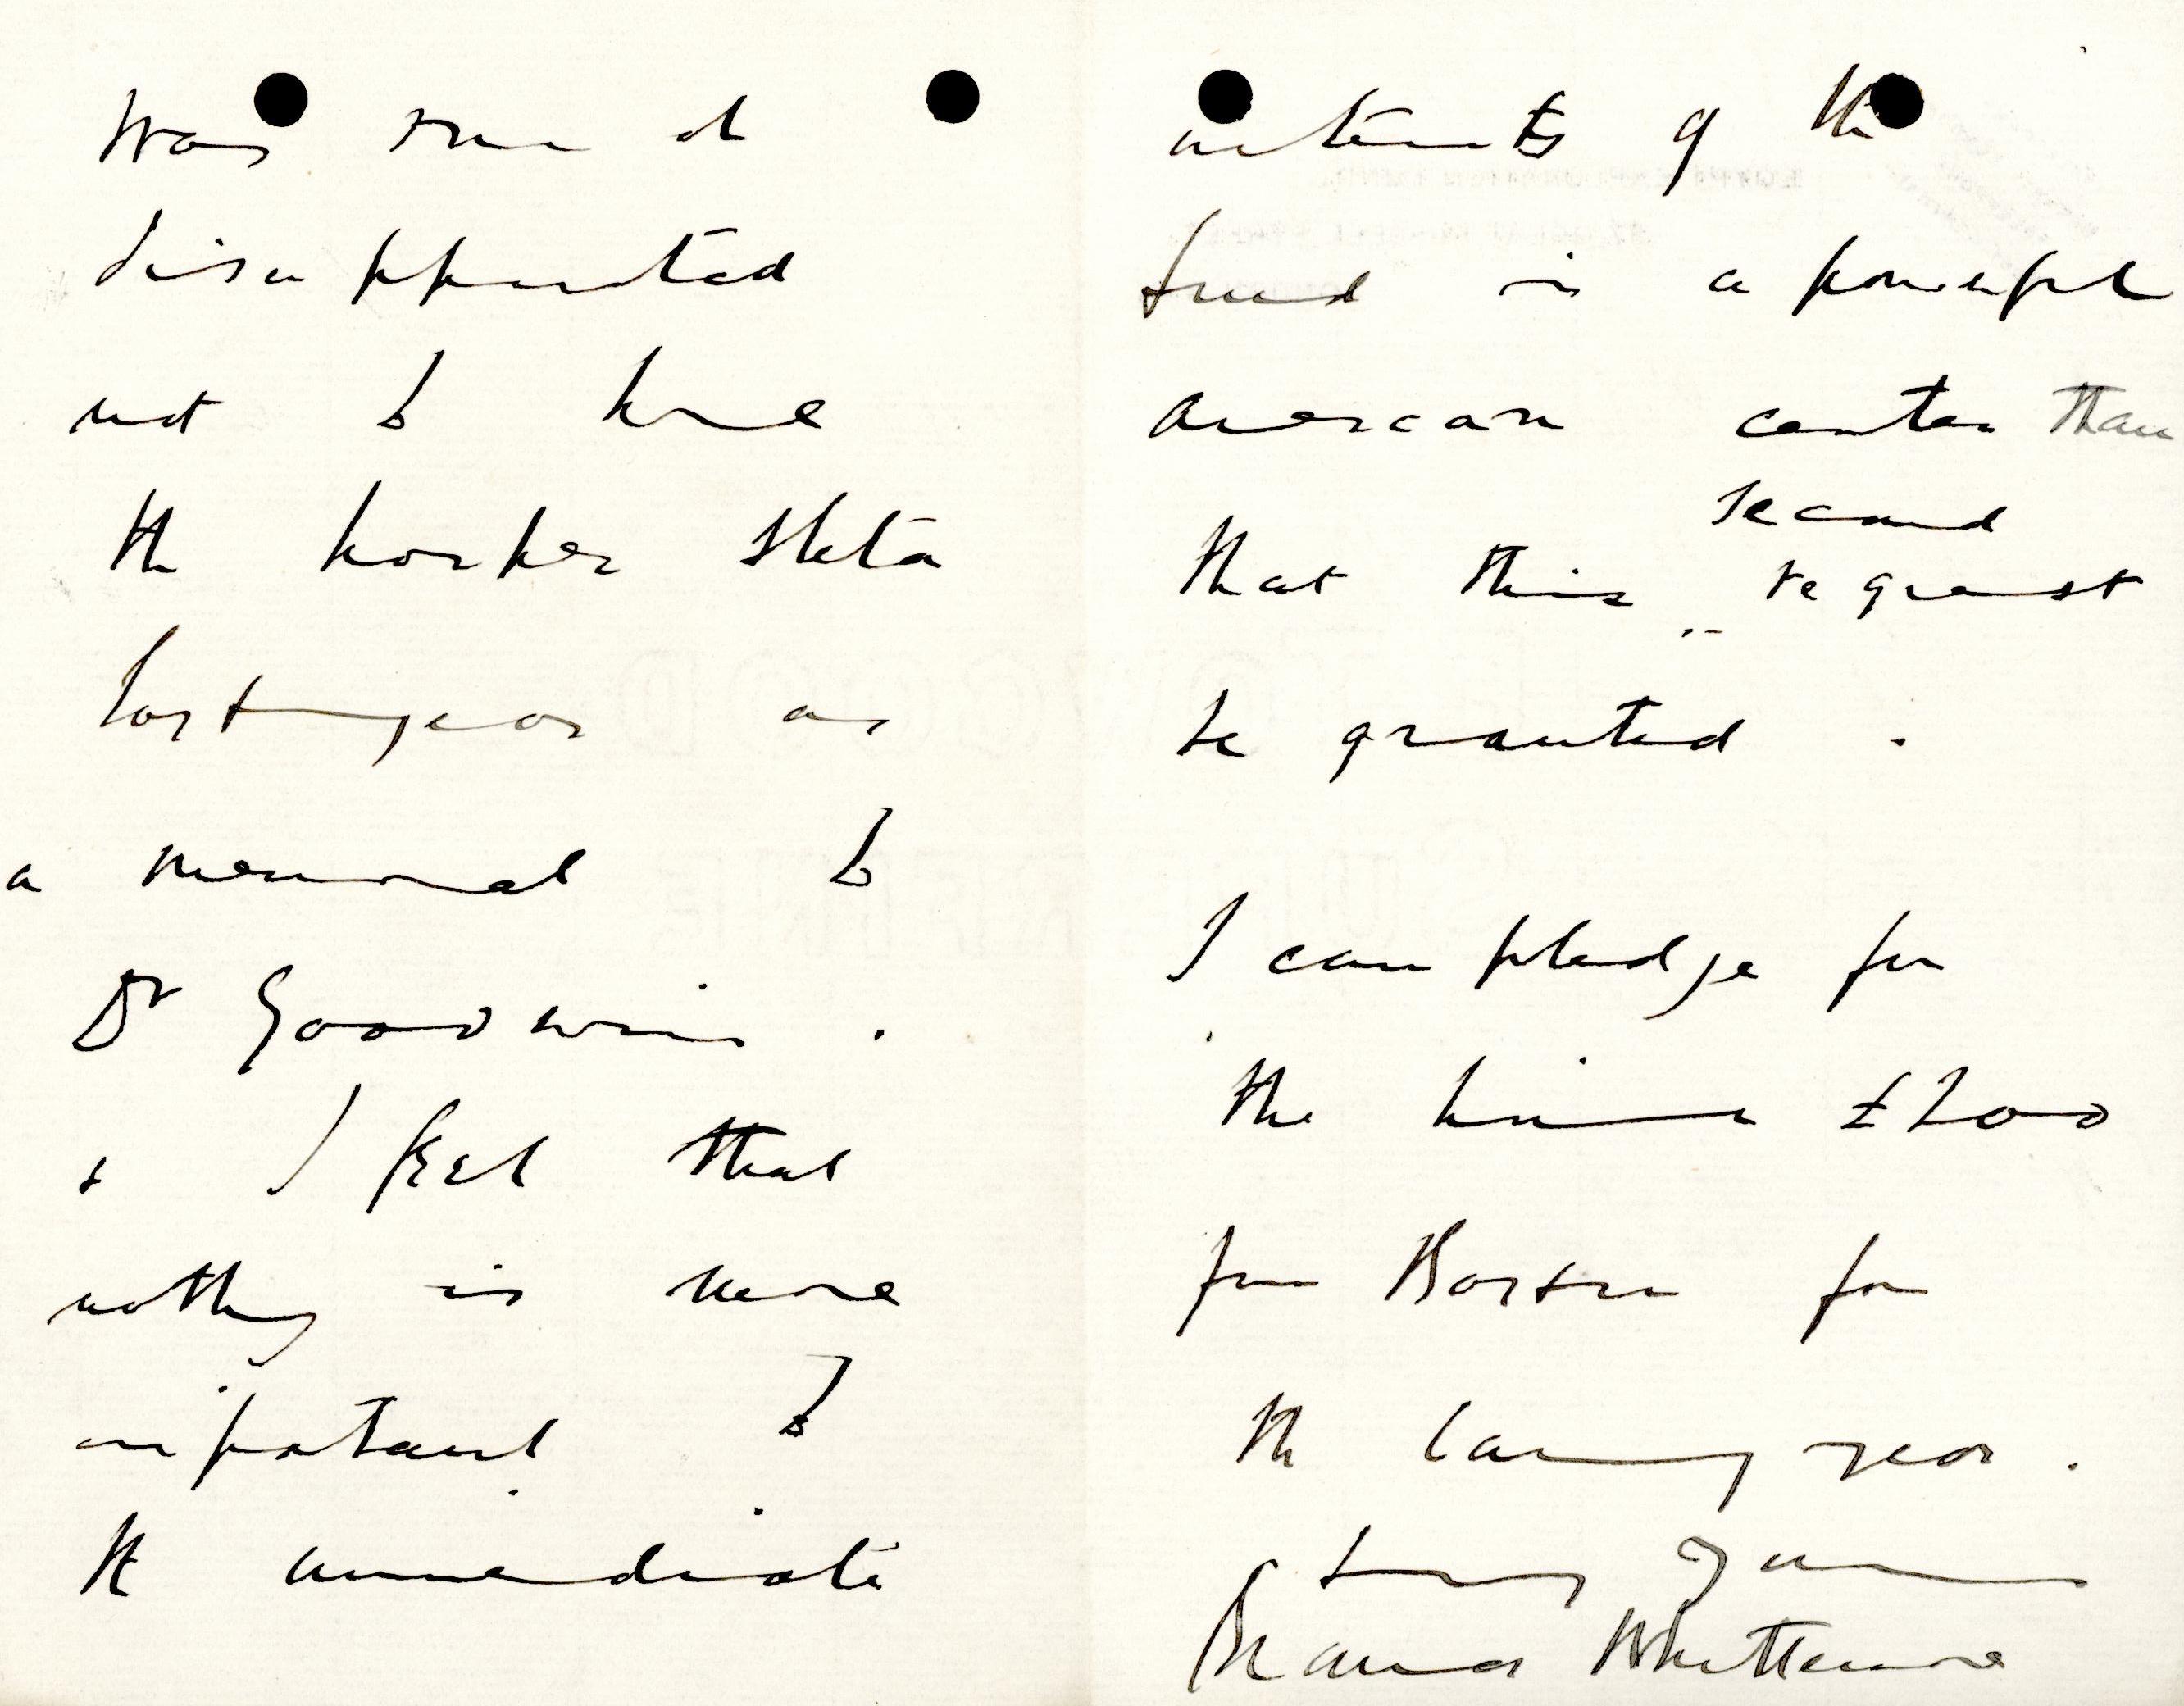 Was
disappointed
not to have
the stela
last year as
a memorial to
Dr Goodwin .
& I feel that
nothing is more
important to
the immediate
interests of the
fund in a powerful
American center than
second
that this request
be granted .
I can pledge for
the £200
from Boston for
the coming year .
Truly Yours
Thomas Whittemore